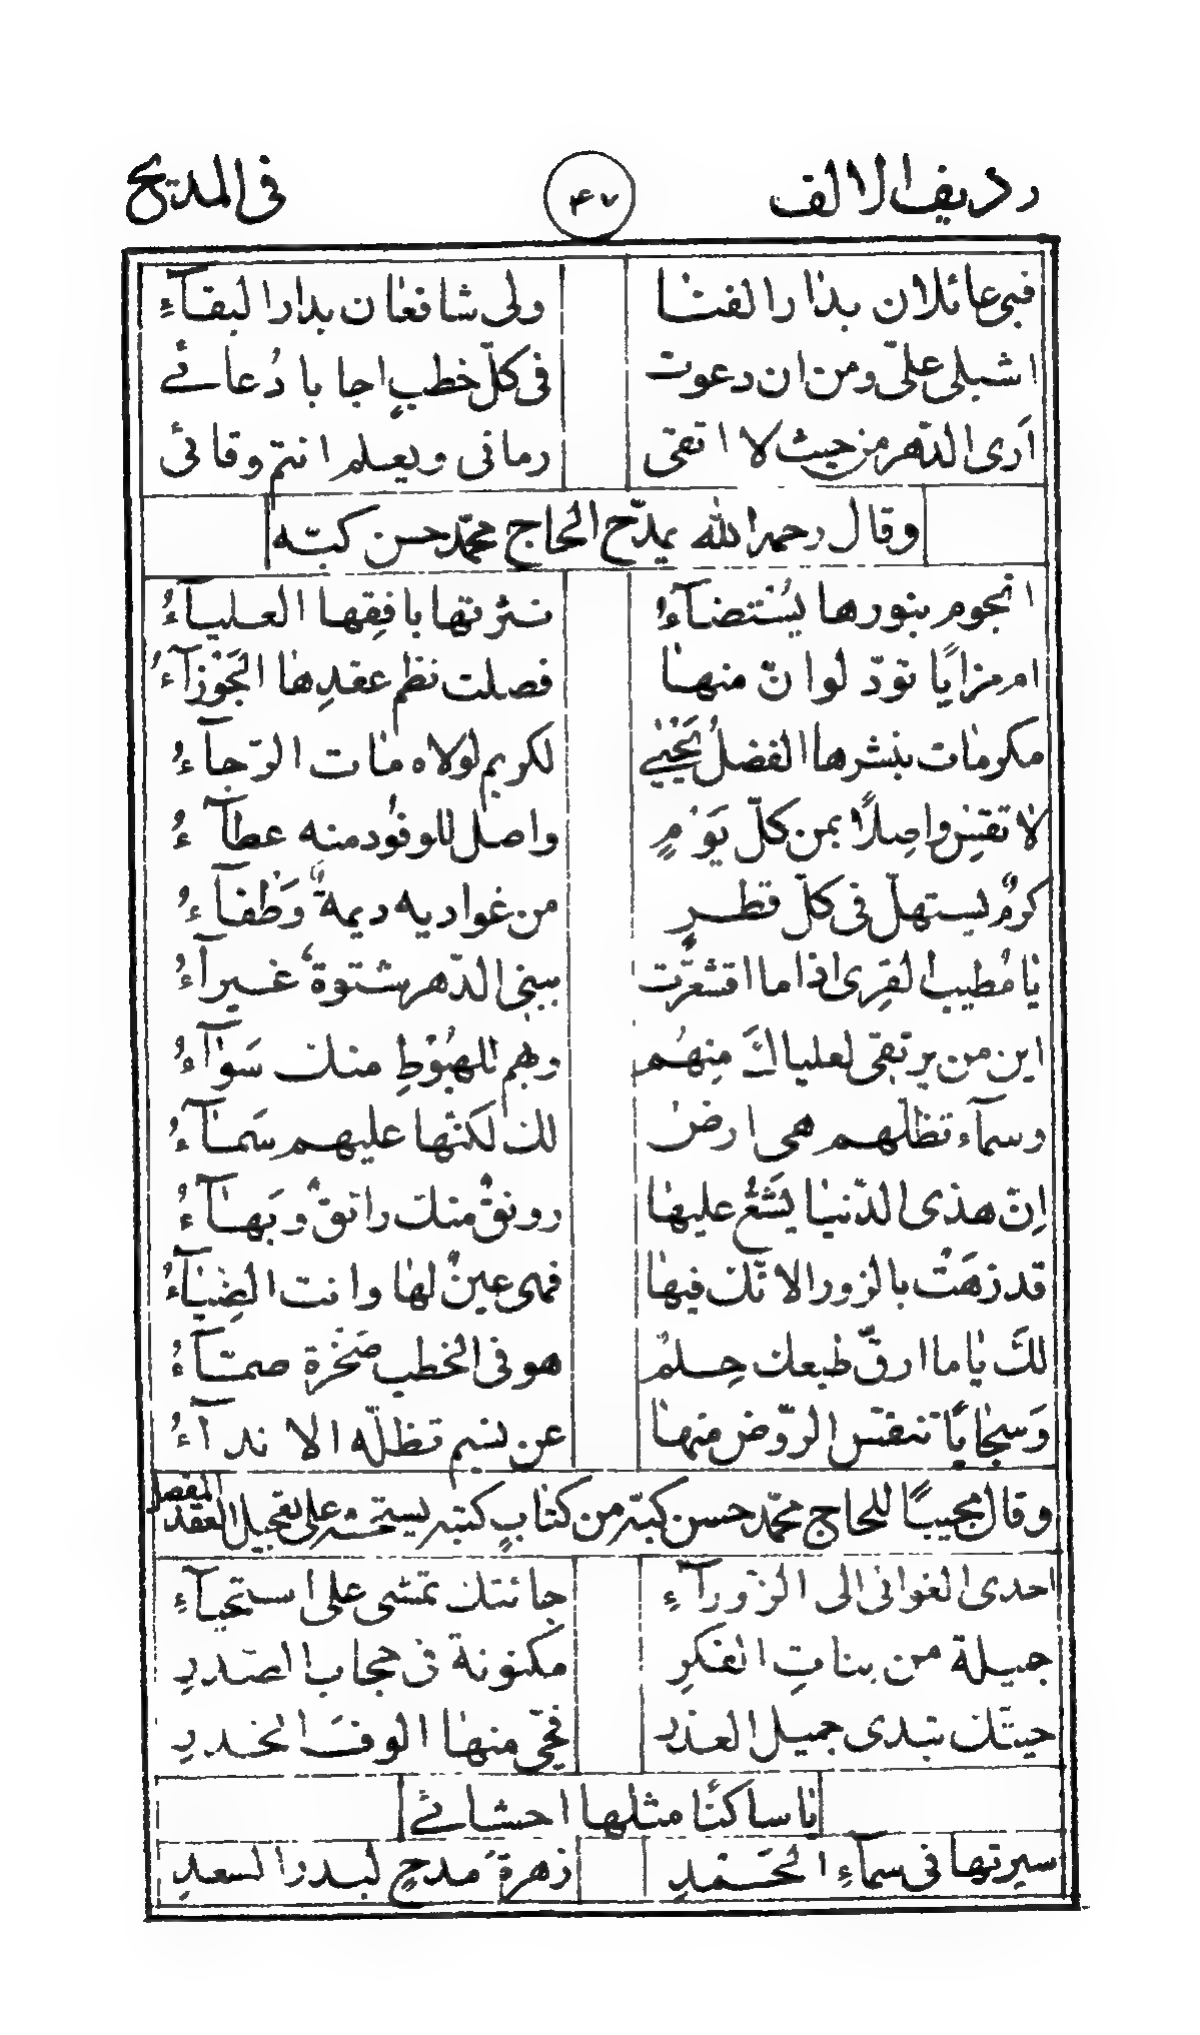 رديف الالف ٤٧ فى المديح
فهى عائلان بدار الفنا ولى شافعان بدار البقآءِ
اشبلى علىّ ومن ان دعوت فى كلّ خطبٍ اجابا دُعائے
اَرى الدّهر من حيث لا اتقى رمانى ويعلم انتم وقائى
وقال رحمه الله يمدّح الحاج محمّد حسن كبّه
انجوم بنورها يُسْتضآءُ نثرتها بافِقها العليآءُ
ام مزايًا تودّ لوانّ منها فصلت نظم عقدِها الجَوْزآءُ
مكرمات بنشرها الفضلُ يَحْيٰى لكريم لولاه مات الرّجآءُ
لا تقِس واصِلاً بمن كلّ يَوْمٍ واصل للوفُود منه عطآءُ
كرمٌ يستهلّ فى كلّ قطرٍ من غواديه ديمةٌ وَطْفآءُ
يا مُطيب القِرى اذا ما اقشعرّت ببنى الدّهر شتوةٌ غبرآءُ
اين من يرتقى لعلياكَ مِنهُم وهم للهبُوْطِ منك سَوآءُ
وسمآء تظلّهم هى ارضٌ لك لكنّها عليهم سَمآءُ
اِنّ هذى الدّنيا يَشعُّ عليها رونقٌ منك رائقٌ وبَهآءُ
قد زهَتْ بالزورا لانّك فيها فهى عينٌ لها وانت الضِيآءُ
لكَ يا ما ارقّ طبعك حِلمٌ هو فى الخطب صَخْرة صمّآءُ
وَسجايًا تنفّس الرّوض منها عن نسيم تظلّه الاندآءُ
وقال مجيبًا للحاج محمّد حسن كبّه من كتابٍ كتبه يستحثه على تعجيل العقد المفصل
احدى الغوانى الى الزّورآءِ جائتك تمشى على استحيآءِ
جميلة من بناتِ الفكرِ مكنونة فى حجاب الصّدرِ
حيتك تبدى جميل العذرِ فحىّ منها الوفَ الخدرِ
يا ساكنًا مثلها احشائے
سيرتها فى سمآءِ الحَمدِ زهرةَ مدحٍ لبدر السعدِ